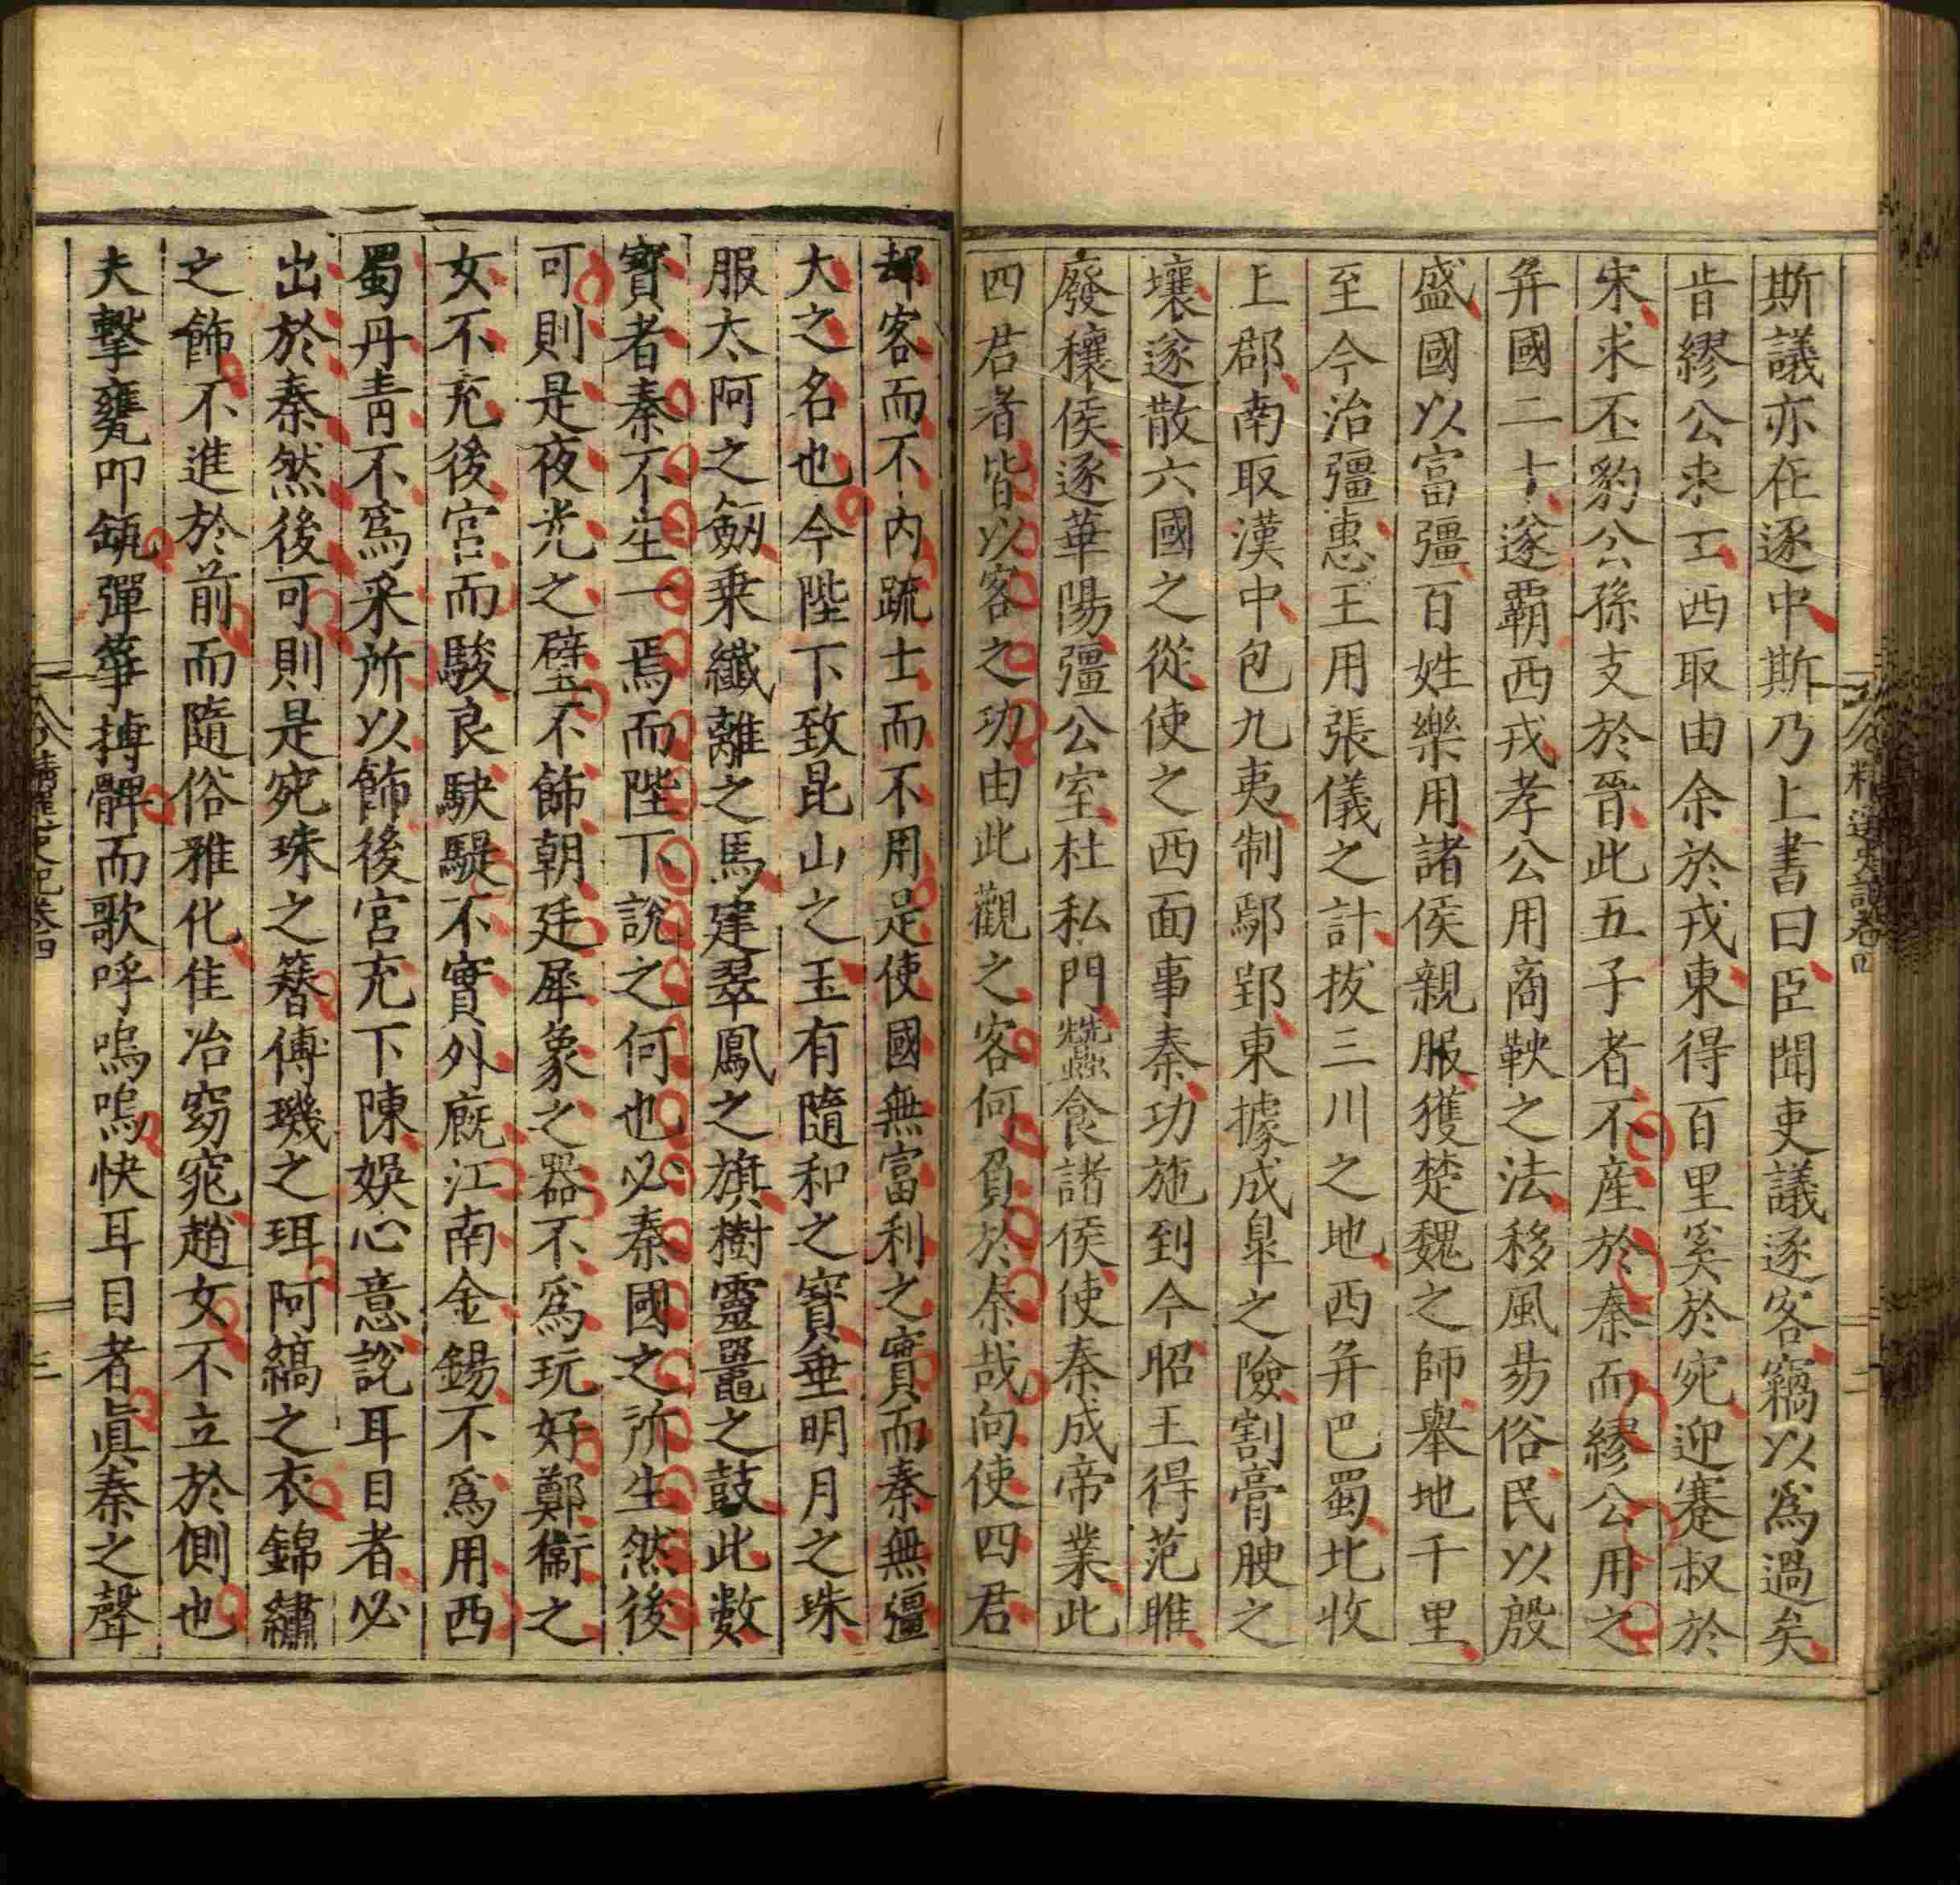 斯議亦在逐中斯乃上書曰臣聞吏議逐客竊以爲過矣
昔繆公求士西取由余於戎東得百里奚於宛迎蹇叔於
宋求丕豹公孫支於晉此五子者不產於秦而繆公用之
并國二十遂霸西戎孝公用商鞅之法移風易俗民以殷
盛國以富彊百姓樂用諸侯親服獲楚魏之師舉地千里
至今治彊惠王用張儀之計拔三川之地西并巴蜀北收
上郡南取漢中包九夷制鄢郢東據成皐之險割膏腴之
壤遂散六國之從使之西面事秦功施到今昭王得范雎
廢穰侯逐華陽彊公室杜私門蠶食諸侯使秦成帝業此
四君者皆以客之功由此觀之客何負於秦哉向使四君
却客而不內疏士而不用是使國無富利之實而秦無彊
大之名也今陛下致昆山之玉有隨和之寶垂明月之珠
服太阿之劒乗纖離之馬建翠鳳之旗樹靈鼉之鼓此數
寶者秦不生一焉而陛下說之何也必秦國之所生然後
可則是夜光之璧不飾朝廷犀象之器不爲玩好鄭衞之
女不充後宮而駿良駃騠不實外廄江南金錫不爲用西
蜀丹靑不爲采所以飾後宮充下陳娛心意說耳目者必
出於秦然後可則是宛珠之簪傅璣之珥阿縞之衣錦繡
之飾不進於前而隨俗雅化佳冶窈窕趙女不立於側也
夫擊甕叩缻彈箏搏髀而歌呼嗚嗚快耳目者眞秦之聲
精選史記卷四
三